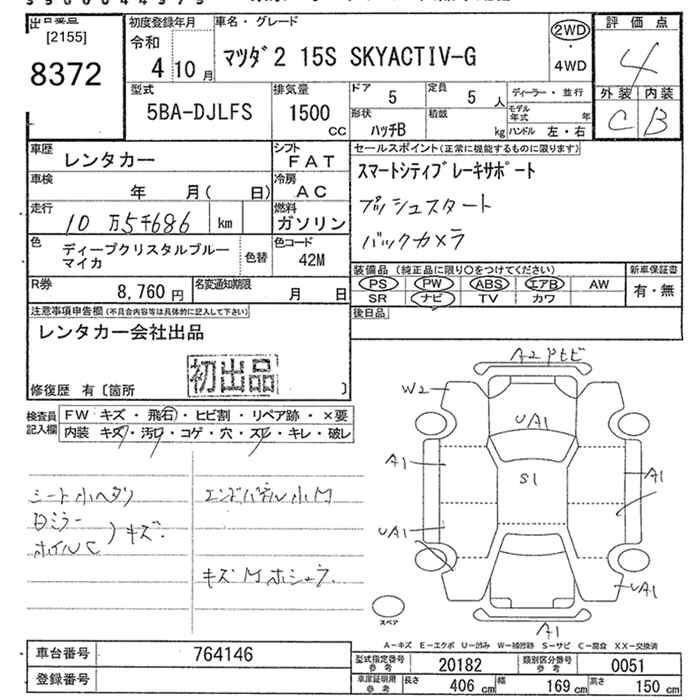 [2155]
8372
初度登録年月
令和
4 10 月
車名・グレード
マツダ2 15S SKYACTIV-G
2WD
・
4WD
評価点
4
外装 内装
C B
型式
5BA-DJLFS
排気量
1500
CC
ドア
5
定員
5 人
形状
ハッチB
積載
kg
ディーラー・並行
モデル年式 年
ハンドル 左・右
車歴
レンタカー
シフト
FAT
車検
年 月( 日)
冷房
AC
走行
10 万5千686 km
燃料
ガソリン
色
ディープクリスタルブルー
マイカ
色替
色コード
42M
R券
8,760 円
名変通知期限
月 日
セールスポイント(正常に機能するものに限ります)
スマートシティブレーキサポート
プッシュスタート
バックカメラ
装備品 (純正品に限り○をつけてください)
PS PW ABS エアB AW
SR ナビ TV カワ
新車保証書
有・無
後日品
注意事項申告欄(不具合内容等は具体的に記入して下さい)
レンタカー会社出品
初出品
修復歴 有〔箇所 〕
検査員
記入欄
FW キズ・飛石・ヒビ割・リペア跡・×要
内装 キズ・汚れ・コゲ・穴・スレ・キレ・破レ
シート小ヘタリ
Dミラー
ホイルC
)キズ.
エンドパネル小M
キズMホシュラ.
A2アトビ
W2
UA1
A1
S1
A1
UA1
UA1
A1
スペア
A-キズ E-エクボ U-凹み W-補修跡 S-サビ C-腐食 XX-交換済
車台番号
764146
登録番号
型式指定番号
参考
20182
類別区分番号
参考
0051
車庫証明用
参考
長さ
406 cm
幅
169 cm
高さ
150 cm